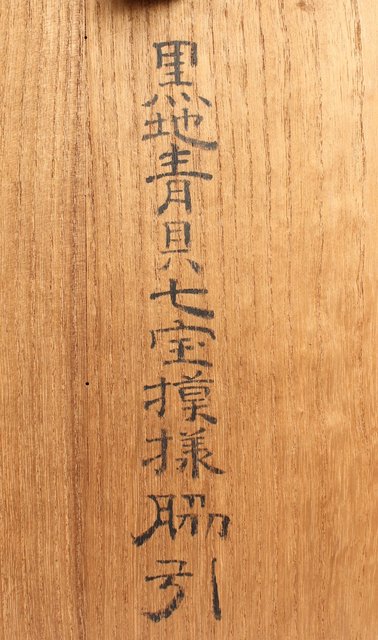 黒地青貝七宝摸様脇引